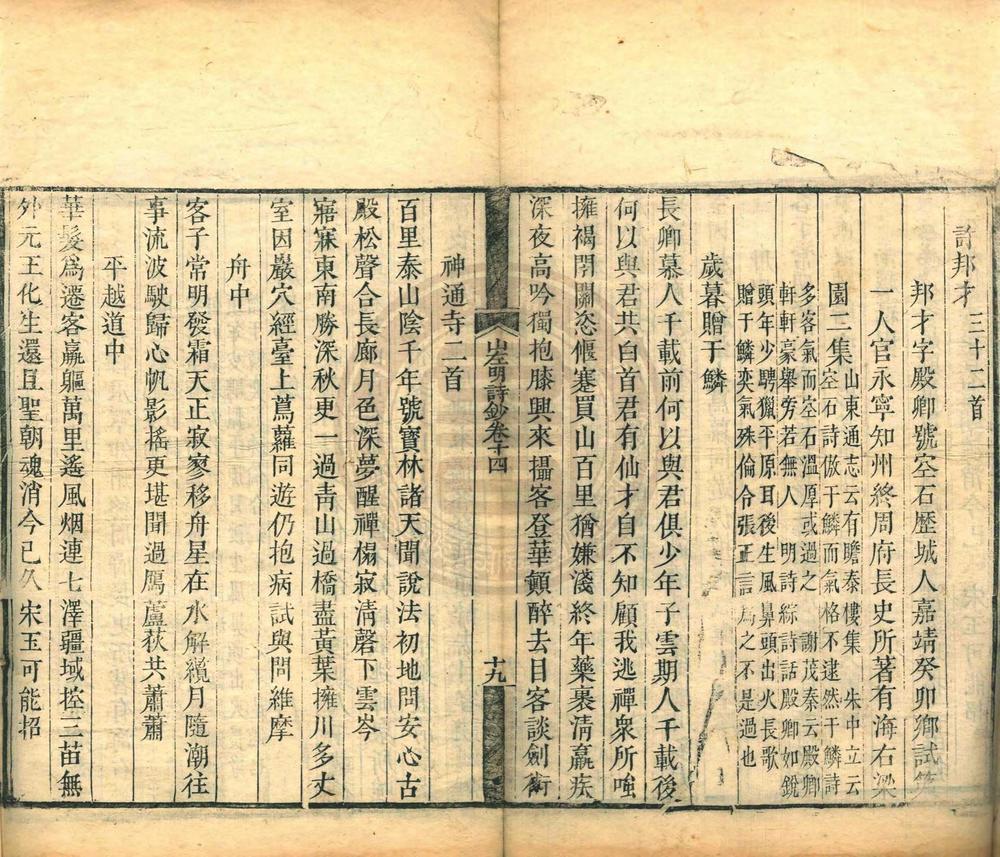 許邦才三十二首
邦才字殿卿號空石歷城人嘉靖癸卯鄉試第
一人官永寧知州終周府長史所著有海右梁
園二集山東通志云有瞻泰樓集　朱中立云
空石詩倣于鱗而氣格不逮然于鱗詩
多客氣而空石溫厚或過之　謝茂秦云殿卿
軒軒豪舉旁若無人　明詩綜詩話殿卿如銳
頭年少騁獵平原耳後生風鼻頭出火長歌
贈于鱗奕氣殊倫令張正言爲之不是過也
歲暮贈于鱗
長卿慕人千載前何以與君俱少年子雲期人千載後
何以與君共白首君有仙才自不知顧我逃禪衆所嗤
擁褐閉關恣偃蹇買山百里猶嫌淺終年藥裹淸羸疾
深夜高吟獨抱膝興來攝客登華顛醉去目客談劍術
山左明詩鈔卷十四
十九
神通寺二首
百里泰山陰千年號寶林諸天聞說法初地問安心古
殿松聲合長廊月色深夢醒禪榻寂淸磬下雲岑
寤寐東南勝深秋更一過靑山過橋盡黃葉擁川多丈
室因巖穴經臺上蔦蘿同遊仍抱病試與問維摩
舟中
客子常明發霜天正寂寥移舟星在水解纜月隨潮往
事流波駛歸心帆影搖更堪聞過鴈蘆荻共蕭蕭
平越道中
華髮爲遷客羸軀萬里遙風烟連七澤疆域控三苗無
外元王化生還且聖朝魂消今已久宋玉可能招